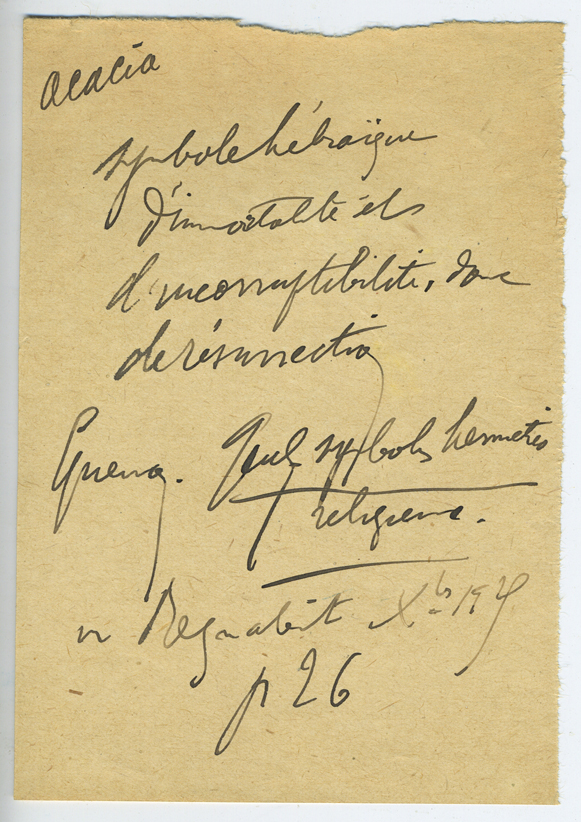 acacia
symbole hébraïque
d'immortalité et
d'incorruptibilité, donc
de résurrection
Guenon. Quelq symbols hermetis
religieux.
in Regnabit Xbre 19
p 26